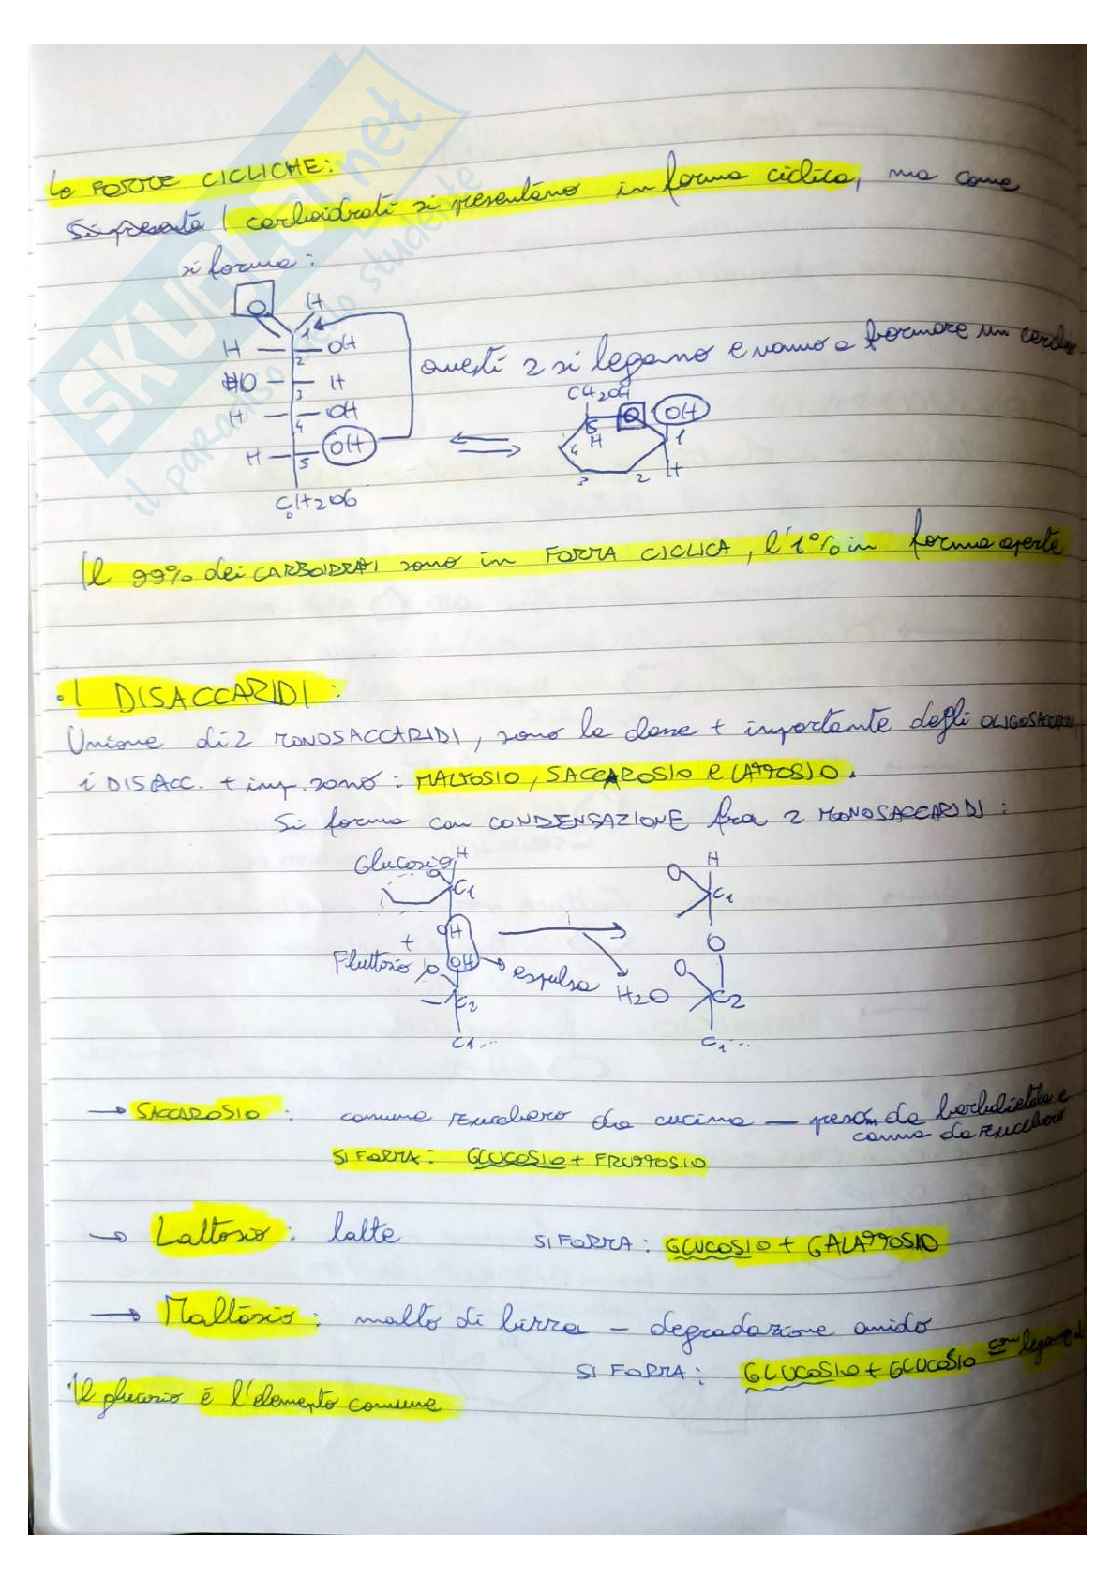 Le FORME CICLICHE:
I carboidrati si presentano in forma ciclica, ma come
si forma:
O H
1
H OH
2
HO H
3
H OH
4
H OH
5
CH2OH
6
questi 2 si legano e vanno a formare un
CH2OH
O OH
5
H 1
4
3 2 H
Il 99% dei CARBOIDRATI sono in FORMA CICLICA, l'1% in forma aperta
• I DISACCARIDI:
Unione di 2 MONOSACCARIDI, sono la classe + importante degli OLIGOSACCARIDI
i DISACC. + imp. sono: MALTOSIO, SACCAROSIO e LATTOSIO.
Si forma con CONDENSAZIONE fra 2 MONOSACCARIDI:
Glucosio H H
O C1 O C1
OH
+ O
Fruttosio O OH → espulsa H2O O
C2 C2
C1... C1...
→ SACCAROSIO: comune zucchero da cucina — da barbabietola e
canna da zucchero
SI FORMA: GLUCOSIO + FRUTTOSIO
→ Lattosio: latte SI FORMA: GLUCOSIO + GALATTOSIO
→ Maltosio: malto di birra – degradazione amido
SI FORMA: GLUCOSIO + GLUCOSIO con
Il glucosio è l'elemento comune
SKUOLA.net
il paradiso dello studente